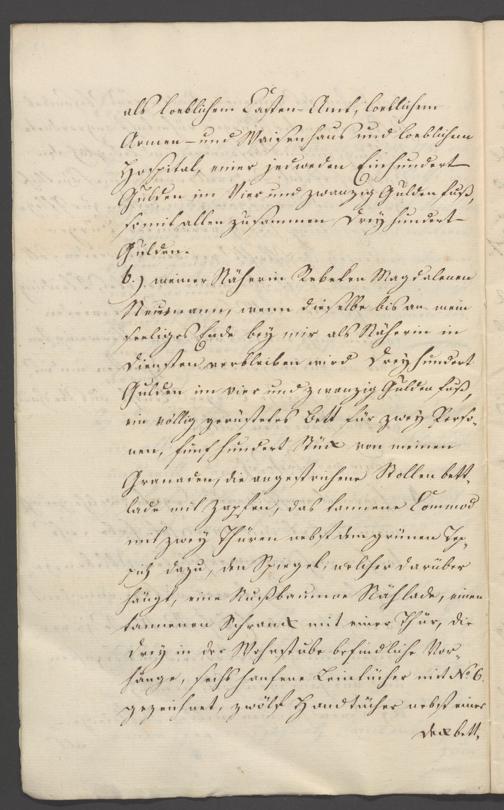 als loeblichem Casten-Amt, loeblichem
Armen- und Waisenhaus und loeblichem
Hospital, einer jedweden Einhundert
Gulden im Vier und zwanzig Gulden Fuß,
somit allen zusammen Drey hundert
Gulden.
6.) meiner Näherin Rebeken Magdalenen
Neumann, wenn dieselbe bis an mein
seeliges Ende bey mir als Näherin in
Diensten verbleiben wird Dreyhundert
Gulden im vier und zwanzig Gulden Fuß,
ein völlig gerüstetes Bett für zwey Perso-
nen, fünf hundert Stück von meinen
Granaden, die angestrichene Stollen bett-
lade mit Zapfen, das tannene Commod
mit zwey Thüren nebst dem grünen Tep-
pich dazu, den Spiegel, welcher darüber
hängt, eine Nußbaumne Nählade, einen
tannenen Schranck mit einer Thür, die
drey in der Wohnstube befindliche Vor-
hänge, sechs hanfene Leintücher mit No 6.
gezeichnet, zwölf Handtücher nebst einer
Deckbett-